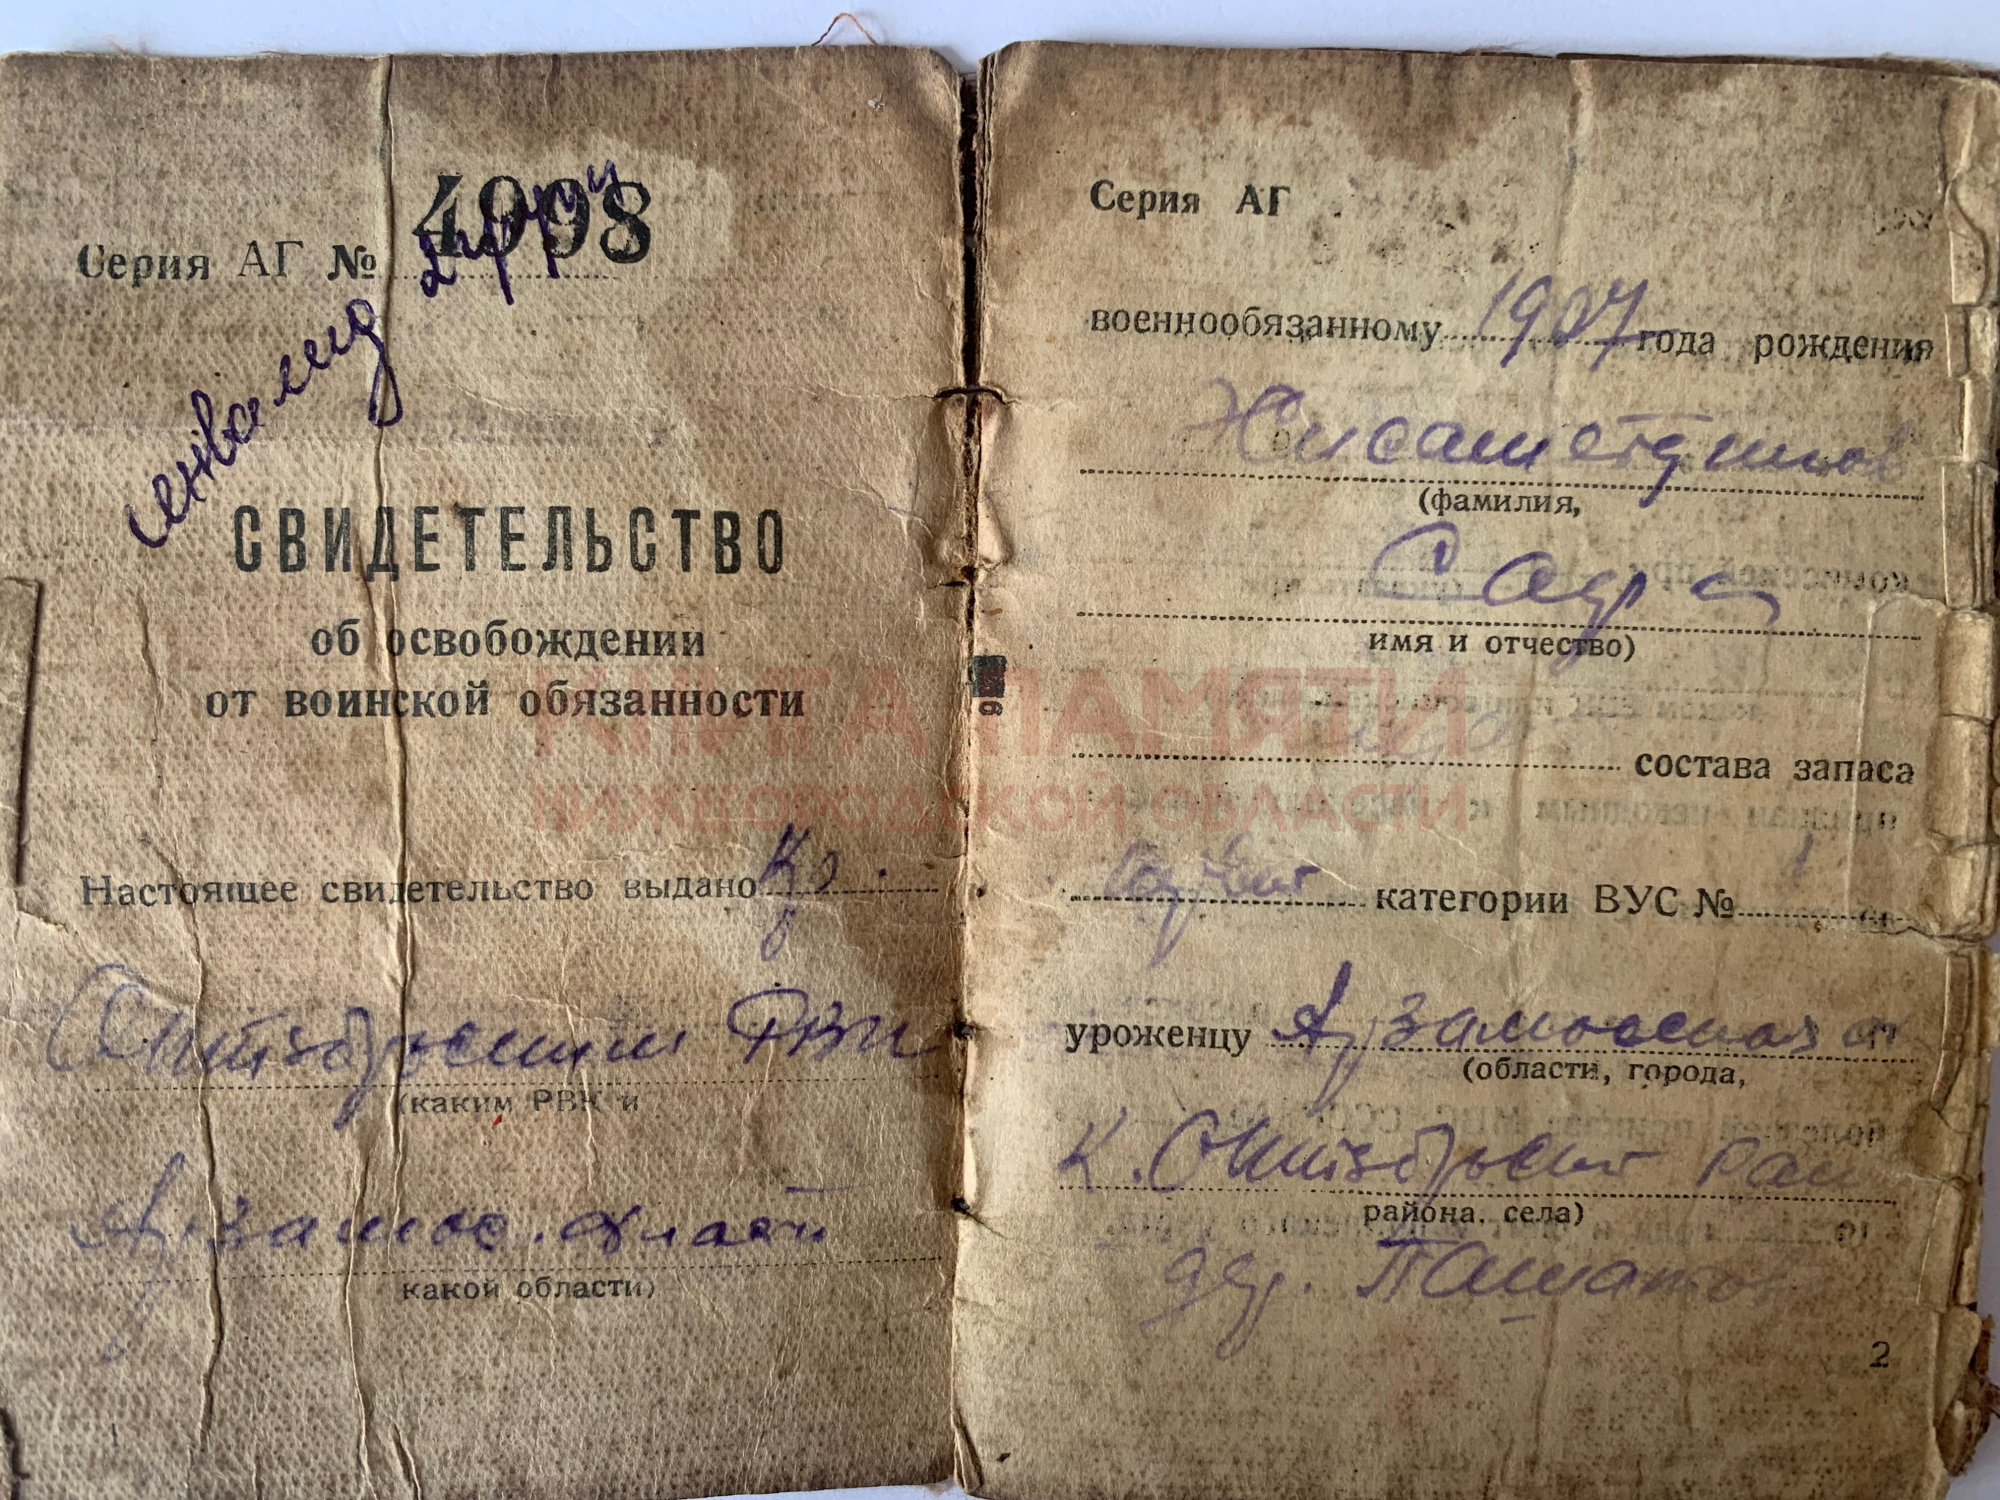 Серия АГ № 4998
инвалид 2 группы
СВИДЕТЕЛЬСТВО
об освобождении
от воинской обязанности
Настоящее свидетельство выдано Кр.
Октябрьским РВК
(каким РВК и
Арзамас. области
какой области)
Серия АГ
военнообязанному 1907 года рождения
Хисаметдинов
(фамилия,
Садр
имя и отчество)
состава запаса
категории ВУС № 1
уроженцу Арзамасская
(области, города,
К. Октябрьский рай
района, села)
дер. Пашатово
2
КНИГА ПАМЯТИ
НИЖЕГОРОДСКОЙ ОБЛАСТИ